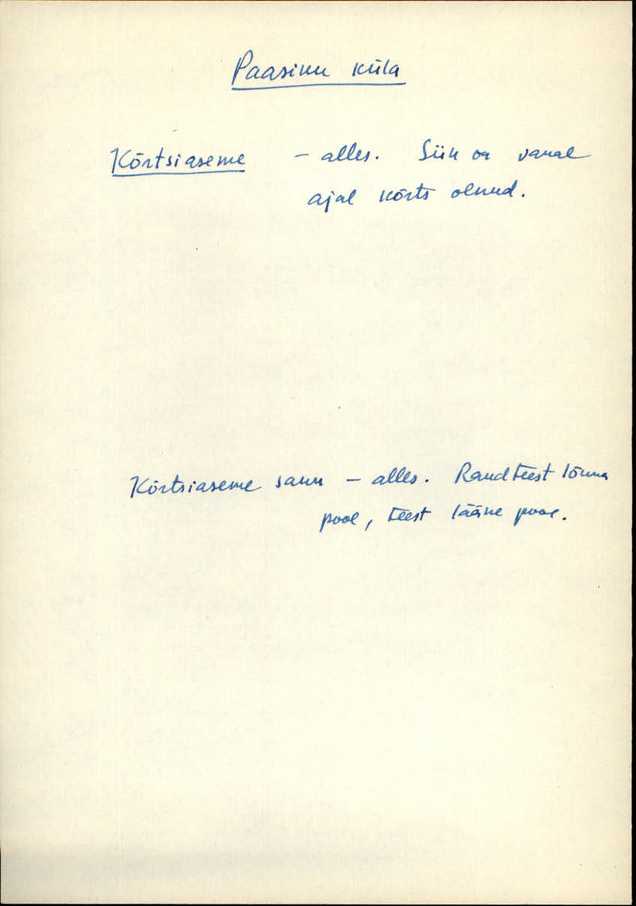 Paasiku küla
Kõrtsiaseme – alles. Siin on vanal
ajal kõrts olnud.
Kõrtsiaseme saun – alles. Raudteest lõuna
pool, teest lääne pool.